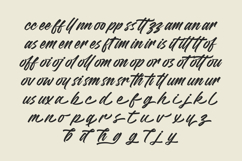 cc ee ff ll nn oo pp ss tt zz am an ar
as em en er es ft im in ir is it tt tl tf of
off oi oj ol om on op or os ot ou
ov ow oy sism sn sr th ti tl um un ur
us ux a b c d e f g h i j k l
m n o p q r s t u v w x y z
b d h g g T L y